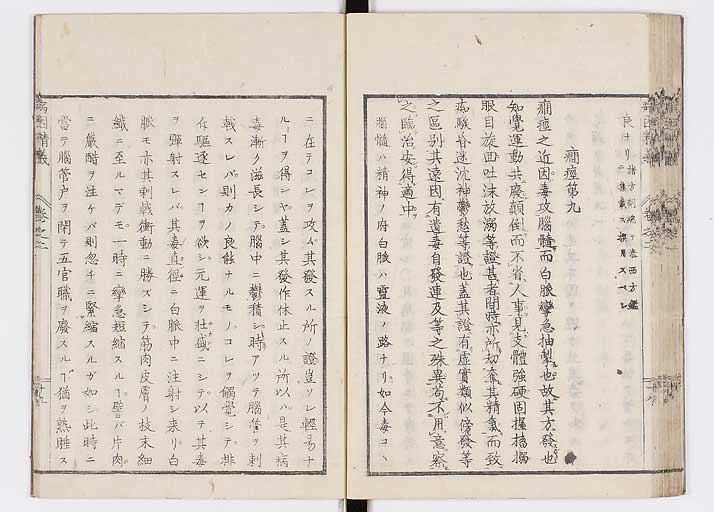 良ナリ諸方剤施テ泰西方鑑
ニ集載ス撰用スベシ
癇痙第九
癇痙之近因毒攻腦髓而白脈攣急抽掣也故其方發也
知覺運動共廢顛倒而不省人事見支體強硬固握搐搦
眼目旋回吐沫放溺等證甚者間時亦所劫奪其精氣而致
痴騃昏迷沈神鬱愁等證也蓋其證有虛實類似傍發等
之區別其遠因有遺毒自發連及等之殊異苟不用意察
之臨治安得適中
腦髓ハ精神ノ府白脈ハ靈液ノ路ナリ如今毒コヽ
ニ在テコレヲ攻ム其發スル所ノ證豈ソレ輕易ナ
ルヿヲ得ンヤ蓋シ其發作休止スル所以ハ是其病
毒漸ク滋長シテ腦中ニ鬱積シ時アツテ腦髓ヲ刺
戟スレバ則カノ良能ナルモノコレヲ觸覺シテ排
斥驅逐センヿヲ欲シ元運ヲ壯盛ニシテ以テ其毒
ヲ彈射スレバ其毒直徑ニ白脈中ニ注射シ来リ白
脈モ亦其刺戟衝動ニ勝ズシテ筋肉皮膚ノ枝末細
纖ニ至ルマデモ一時ニ攣急短縮スルヿ譬バ片肉
ニ嚴醋ヲ注ケバ則忽チニ緊縮スルガ如シ此時ニ
當テ腦管戸ヲ閉テ五官職ヲ廢スルヿ猶ヲ熟睡ス